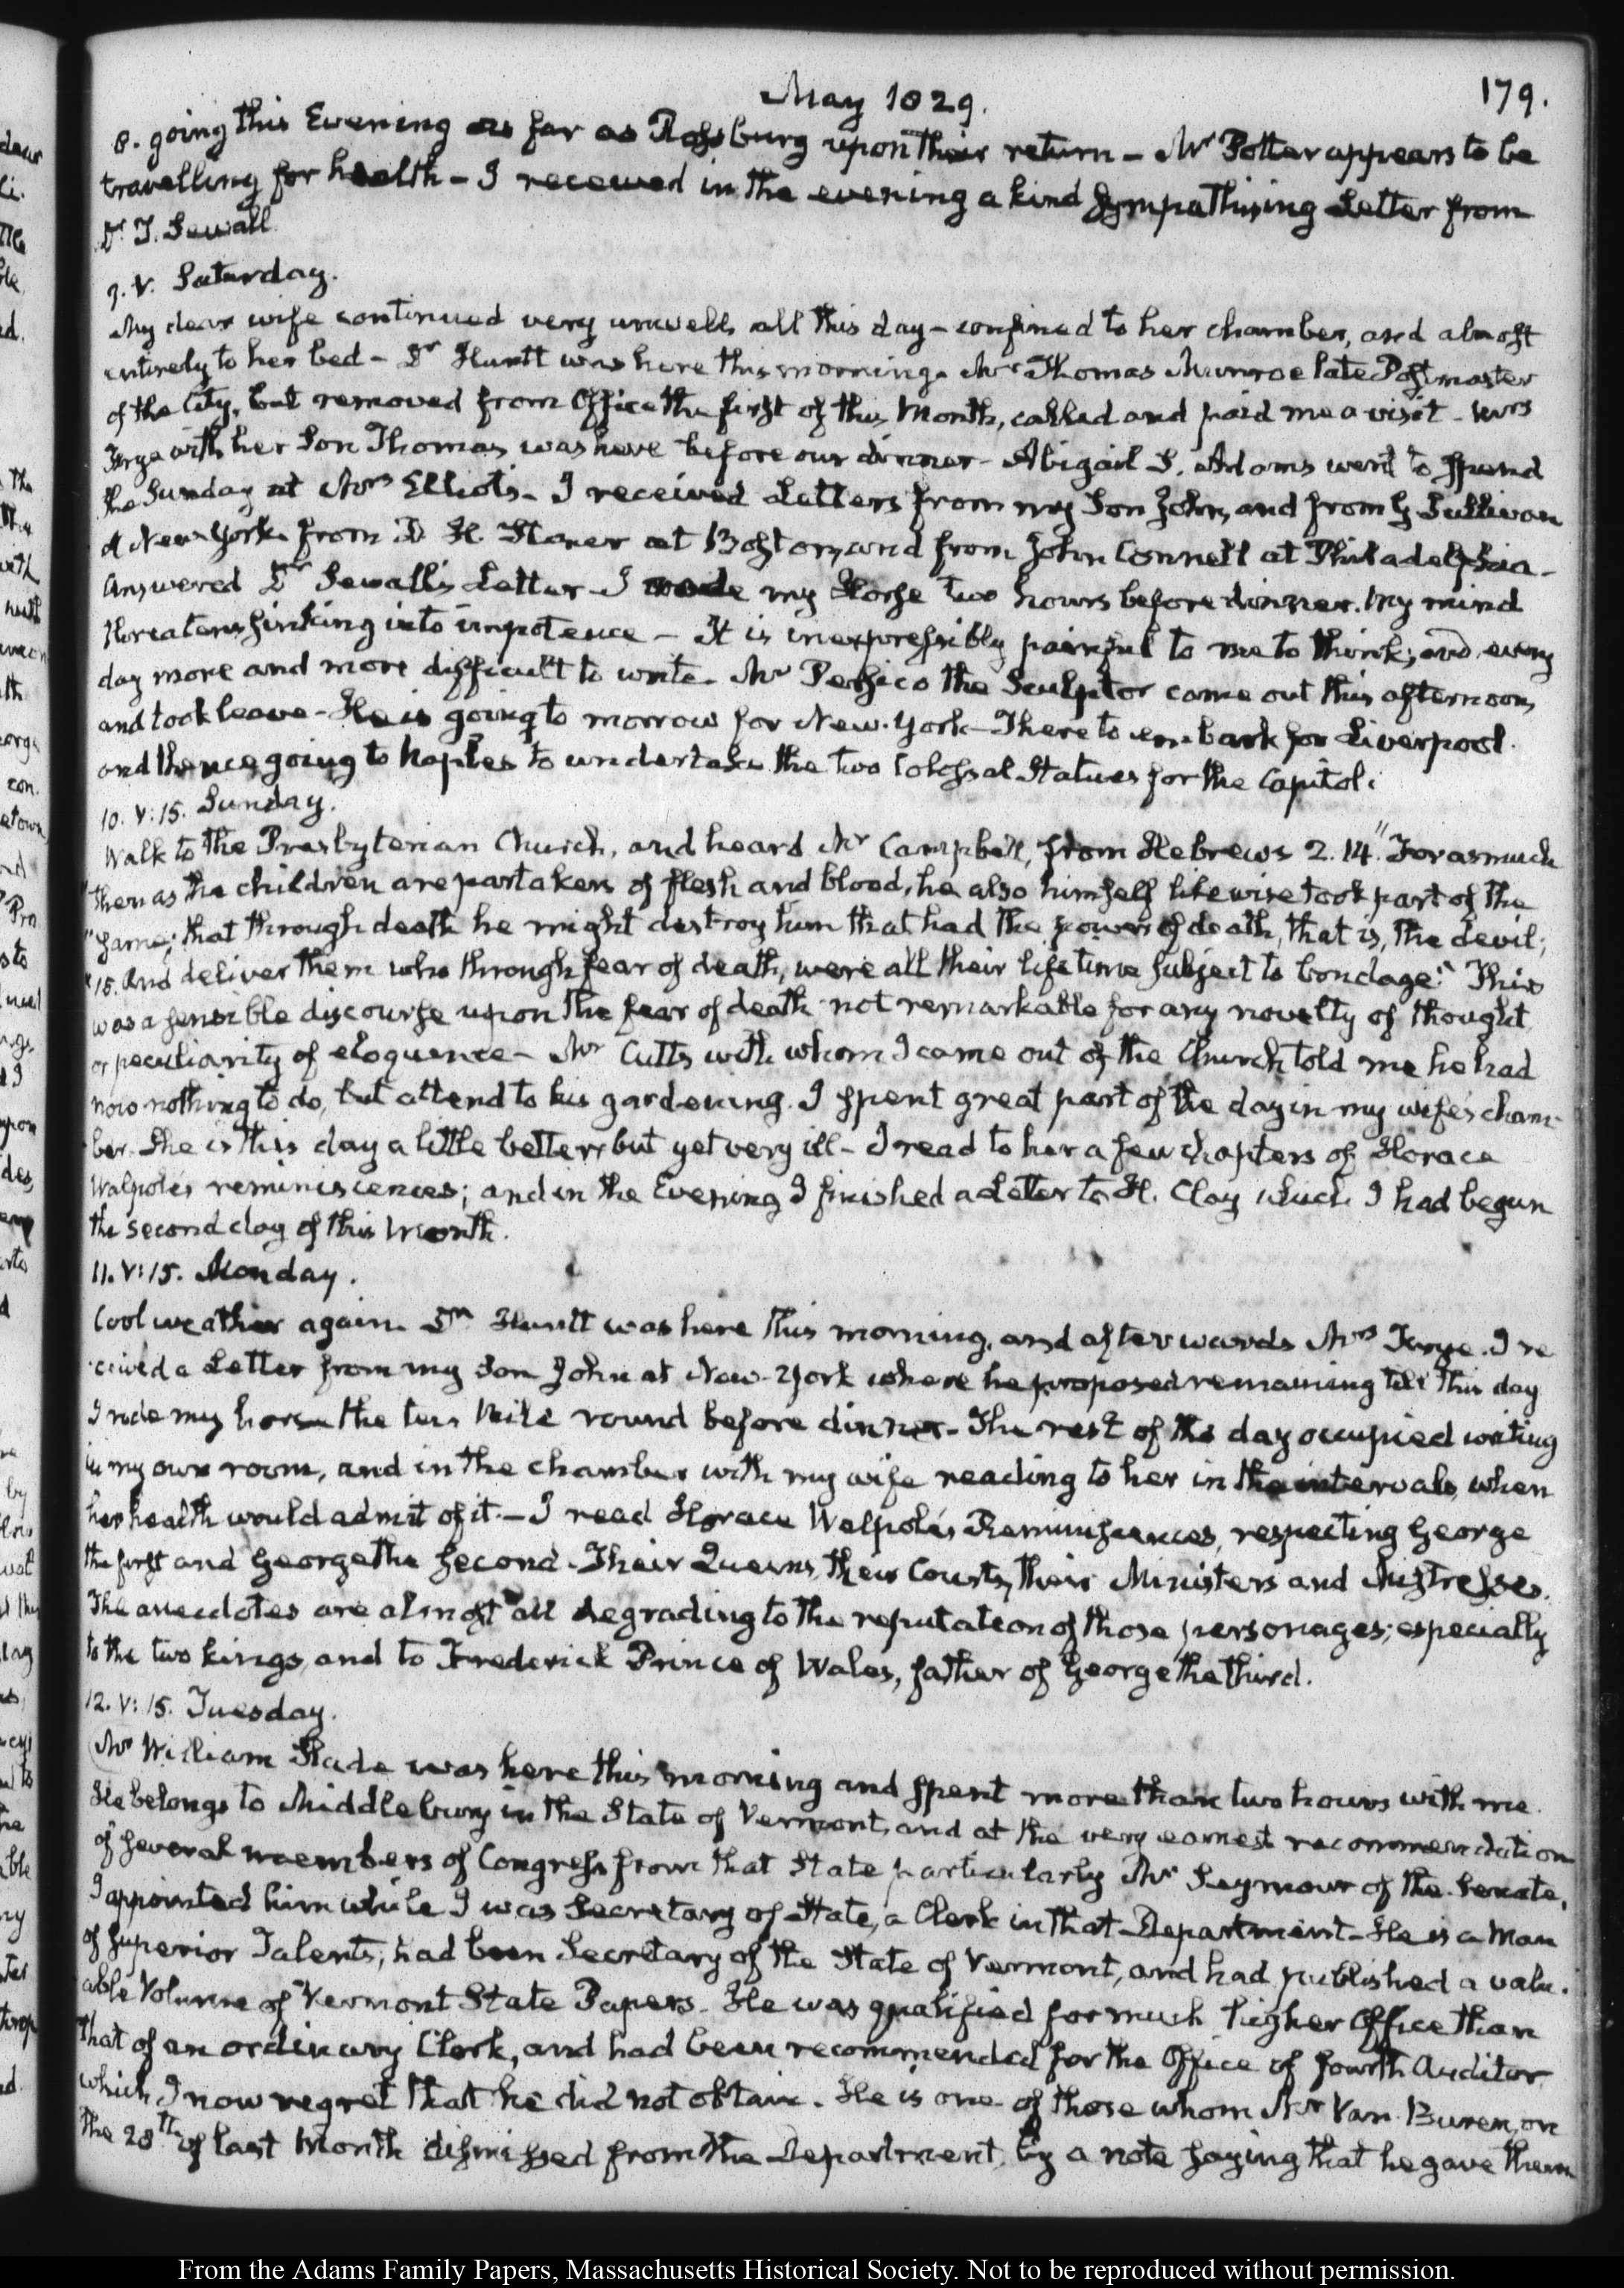 May 1829.
179.
8. going this Evening as far as Rossburg upon their return – Mr Potter appears to be
travelling for health – I received in the evening a kind sympathising Letter from
Dr T. Sewall.
9. V. Saturday.
My dear wife continued very unwell, all this day – confined to her chamber, and almost
entirely to her bed – Dr Huntt was here this morning. Mr Thomas Munroe late Postmaster
of the City, but removed from Office the first of this Month, called and paid me a visit – Mrs
Frye with her Son Thomas was here before our dinner – Abigail S. Adams went to spend
the Sunday at Mrs Elliot's – I received Letters from my Son John, and from G Sullivan
at New-York. from D H. Storer at Boston, and from John Connell at Philadelphia –
Answered Dr Sewall's Letter – I rode my Horse two hours before dinner. My mind
threatens sinking into impotence – It is inexpressibly painful to me to think; and every
day more and more difficult to write. Mr Persico the Sculptor came out this afternoon,
and took leave – He is going to morrow for New-York – There to embark for Liverpool.
and thence going to Naples to undertake the two Colossal Statues for the Capitol.
10. V:15. Sunday.
Walk to the Presbyterian Church, and heard Mr Campbell, from Hebrews 2.14. "Forasmuch
"then as the children are partakers of flesh and blood, he also himself likewise took part of the
"same; that through death he might destroy him that had the power of death, that is, the devil;
"15. And deliver them who through fear of death, were all their life time subject to bondage." This
was a sensible discourse upon the fear of death not remarkable for any novelty of thought
or peculiarity of eloquence – Mr Cutts with whom I came out of the Church told me he had
now nothing to do, but attend to his gardening. I spent great part of the day in my wife's cham-
ber. She is this day a little better, but yet very ill – I read to her a few chapters of Horace
Walpole's reminiscences; and in the Evening I finished a Letter to H. Clay which I had begun
the second day of this Month.
11. V:15. Monday.
Cool weather again. Dr Huntt was here this morning, and afterwards Mrs Frye. I re
ceived a Letter from my Son John at New-York where he proposed remaining till this day
I rode my horse the ten Mile round before dinner – The rest of the day occupied writing
in my own room, and in the chamber with my wife reading to her in the intervals, when
her health would admit of it. – I read Horace Walpole's Reminiscences, respecting George
the first and George the Second – Their Queens, their Courts, their Ministers and Mistresses.
The anecdotes are almost all degrading to the reputation of those personages; especially
to the two kings, and to Frederick Prince of Wales, father of George the third.
12. V:15. Tuesday.
Mr William Slade was here this morning and spent more than two hours with me.
He belongs to Middlebury in the State of Vermont, and at the very earnest recommendation
of several members of Congress from that State particularly Mr Seymour of the Senate,
I appointed him while I was Secretary of State, a Clerk in that Department – He is a Man
of superior Talents; had been Secretary of the State of Vermont, and had published a valu-
able Volume of Vermont State Papers. He was qualified for much higher Office than
that of an ordinary Clerk, and had been recommended for the Office of fourth Auditor
which I now regret that he did not obtain. He is one of those whom Mr Van Buren, on
the 28th of last Month dismissed from the Department, by a note saying that he gave them
From the Adams Family Papers, Massachusetts Historical Society. Not to be reproduced without permission.